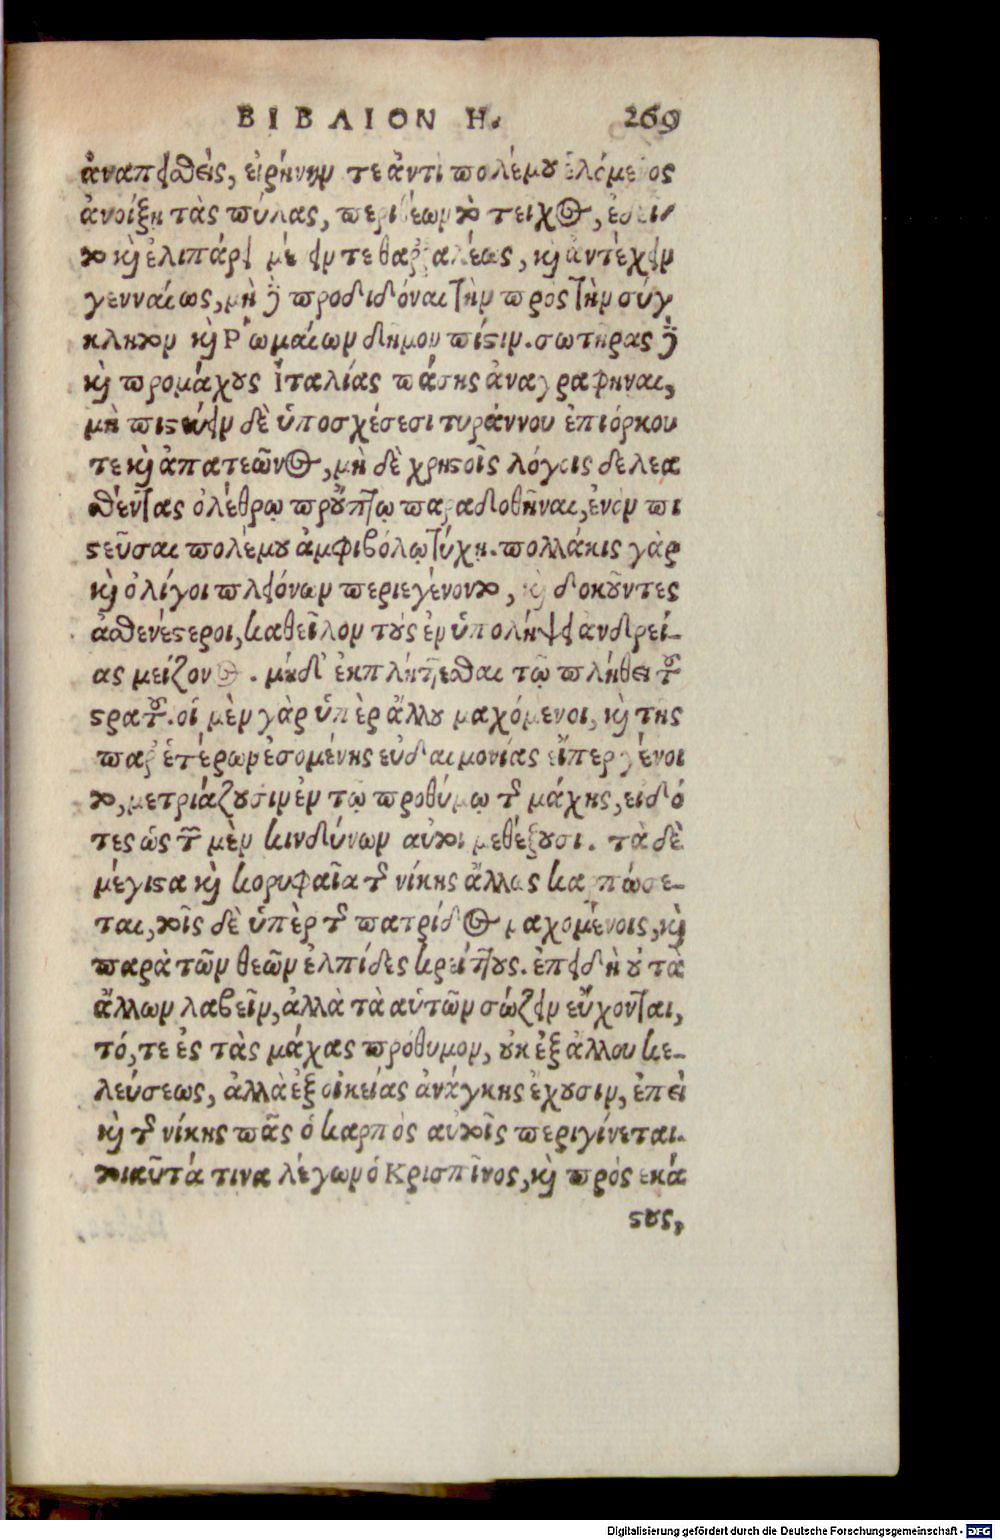 ΒΙΒΛΙΟΝ Η. 269
ἀναπεισθεὶς, εἰρήνην τε ἀντὶ πολέμου ἑλόμενος
ἀνοίξῃ τὰς πύλας, περιθέων τὸ τεῖχος, ἐδεῖ-
το καὶ ἐλιπάρει μένειν τε θαρσαλέως, καὶ ἀντέχειν
γενναίως, μὴ δὲ προδιδόναι τὴν πρὸς τὴν σύγ
κλητον καὶ Ῥωμαίων δήμου πίστιν. σωτῆρας δὲ
καὶ προμάχους Ἰταλίας πάσης ἀναγραφῆναι,
μὴ πιστεύειν δὲ ὑποσχέσεσι τυράννου ἐπιόρκου
τε καὶ ἀπατεῶνος, μὴ δὲ χρηστοῖς λόγοις δελεα
σθέντας ὀλέθρῳ προὔπτῳ παραδοθῆναι, ἐνὸν πι
στεῦσαι πολέμου ἀμφιβόλῳ τύχῃ. πολλάκις γὰρ
καὶ ὀλίγοι πλειόνων περιεγένοντο, καὶ δοκοῦντες
ἀσθενέστεροι, καθεῖλον τοὺς ἐν ὑπολήψει ἀνδρεί-
ας μείζονος. μηδ' ἐκπλήττεσθαι τῷ πλήθει τοῦ
στρατοῦ. οἱ μὲν γὰρ ὑπὲρ ἄλλου μαχόμενοι, καὶ τῆς
παρ' ἑτέρων ἐσομένης εὐδαιμονίας εἴπερ γένοι
το, μετριάζουσιν ἐν τῷ προθύμῳ τῆς μάχης, εἰδό
τες ὡς τῶν μὲν κινδύνων αὐτοὶ μεθέξουσι. τὰ δὲ
μέγιστα καὶ κορυφαῖα τῆς νίκης ἄλλος καρπώσε-
ται, τοῖς δὲ ὑπὲρ τῆς πατρίδος μαχομένοις, καὶ
παρὰ τῶν θεῶν ἐλπίδες κρείττους. ἐπειδὴ οὐ τὰ
ἄλλων λαβεῖν, ἀλλὰ τὰ αὑτῶν σώζειν εὔχονται,
τό, τε ἐς τὰς μάχας πρόθυμον, οὐκ ἐξ ἄλλου κε-
λεύσεως, ἀλλὰ ἐξ οἰκείας ἀνάγκης ἔχουσιν, ἐπεὶ
καὶ τῆς νίκης πᾶς ὁ καρπὸς αὐτοῖς περιγίνεται.
τοιαῦτά τινα λέγων ὁ Κρισπῖνος, καὶ πρὸς ἑκά
στους,
Digitalisierung gefördert durch die Deutsche Forschungsgemeinschaft - DFG